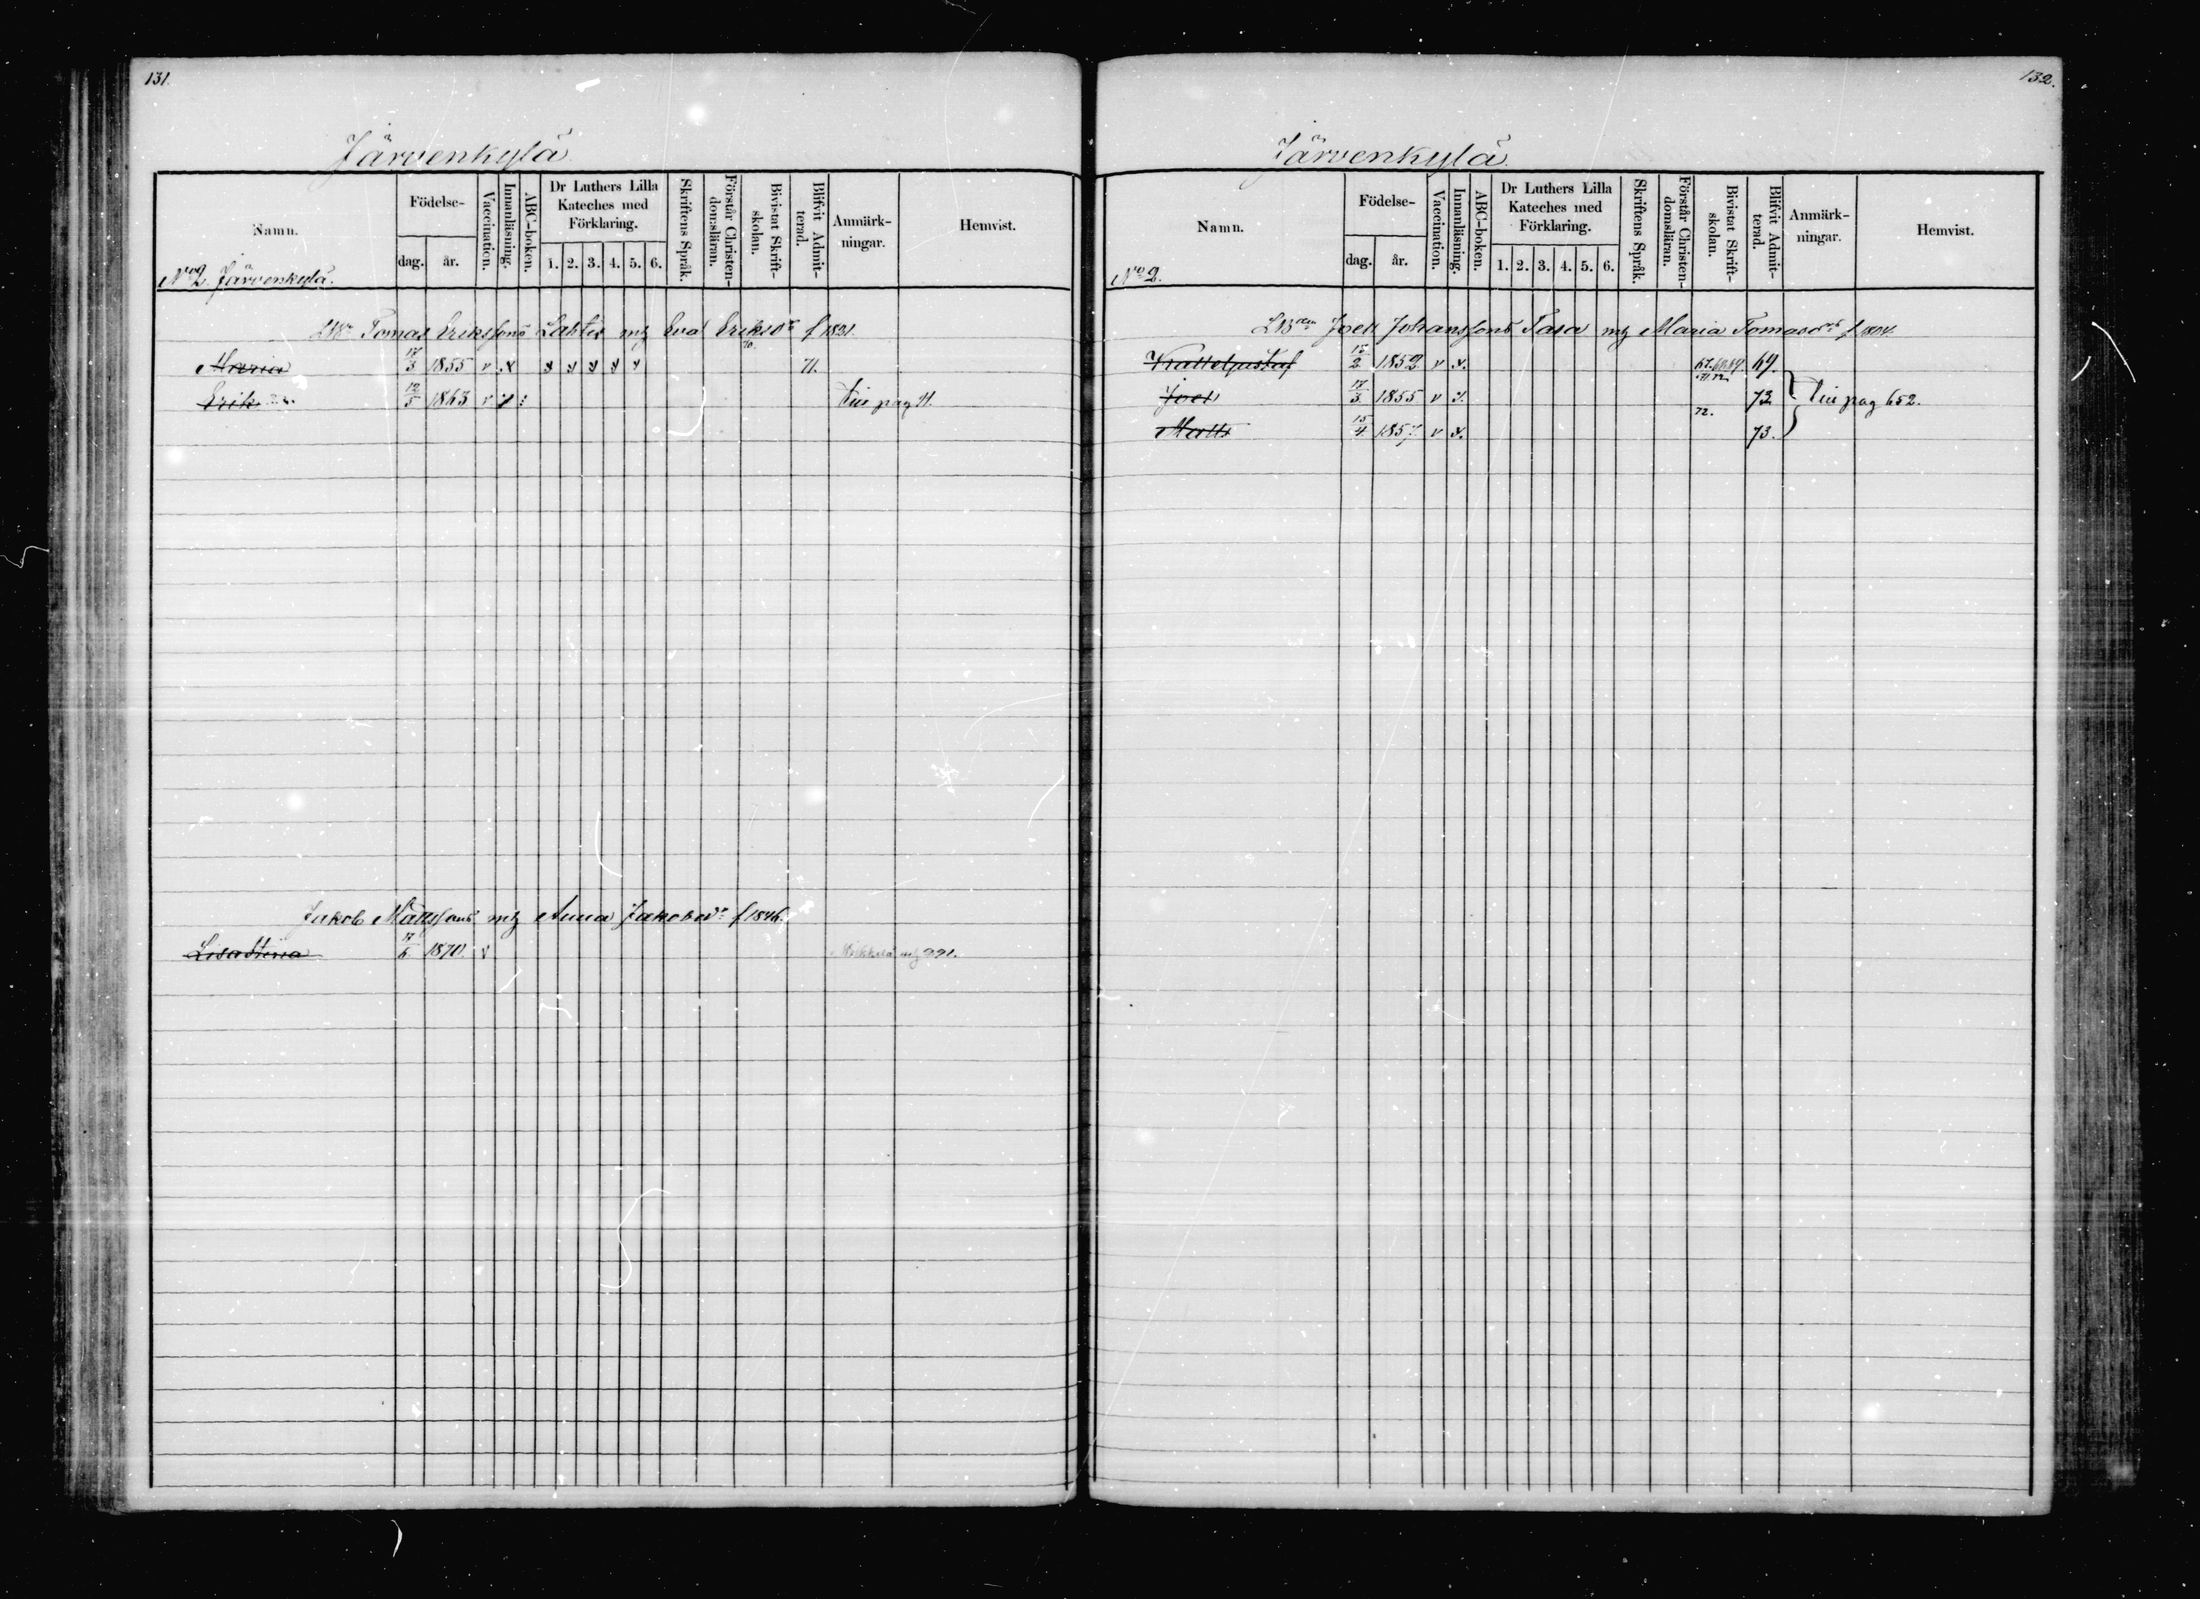 131.
Järvenkylä
Namn. Födelse- Vaccination. Innanläsning. ABC-boken. Dr Luthers Lilla Kateches med Förklaring. Skriftens Språk. Förstår Christen-domsläran. Bivistat Skrift-skolan. Blifvit Admit-terad. Anmärk-ningar. Hemvist.
dag. år. 1. 2. 3. 4. 5. 6.
No 2. Järvenkylä.
Tomas Erikssons Lahtis mz Eva Eriksdr f 1831.
Maria 17/3 1855 v x x x x x x 70. 71.
Erik 12/5 1863 v x : Till pag 11.
Jakob Mattssons mz Anna Jakobsdr f 1846.
Lisa Stina 17/6 1870. v mz 991.
132.
Järvenkylä.
Namn. Födelse- Vaccination. Innanläsning. ABC-boken. Dr Luthers Lilla Kateches med Förklaring. Skriftens Språk. Förstår Christen-domsläran. Bivistat Skrift-skolan. Blifvit Admit-terad. Anmärk-ningar. Hemvist.
dag. år. 1. 2. 3. 4. 5. 6.
No 2.
Joell Johanssons Tasa mz Maria Tomasd f 1804.
15/2 1852 v x. 69.
Joel 17/3 1855 v x. 71. 72. 73. Till pag 652.
Matts 15/4 1857. v x. 72. 73.